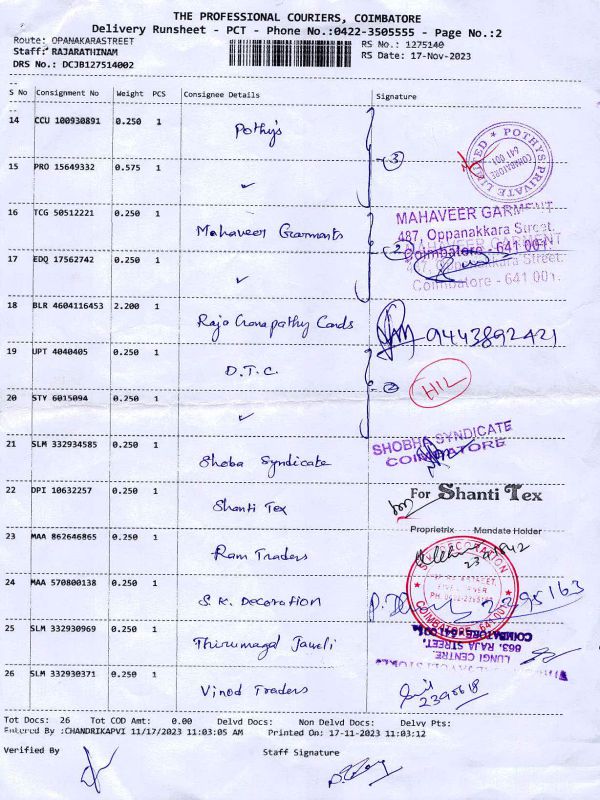 THE PROFESSIONAL COURIERS, COIMBATORE
Delivery Runsheet - PCT - Phone No.:0422-3505555 - Page No.:2
Route: OPANAKARASTREET
RS No.: 1275140
Staff: RAJARATHINAM
RS Date: 17-Nov-2023
DRS No.: DCJB127514002
S No Consignment No Weight PCS Consignee Details Signature
14 CCU 100930891 0.250 1 Pothys
POTHYS PRIVATE LIMITED
COIMBATORE 641 001.
3
15 PRO 15649332 0.575 1 ✓
16 TCG 50512221 0.250 1 Mahaveer Garments
MAHAVEER GARMENT
487, Oppanakkara Street.
Coimbatore - 641 001.
2
17 EDQ 17562742 0.250 1 ✓
487, Oppanakkara Street.
Coimbatore - 641 001.
18 BLR 4604116453 2.200 1 Raja Ganapathy Cards
9443892421
19 UPT 4040405 0.250 1 D.T.C.
2
HIL
20 STY 6015094 0.250 1 ✓
21 SLM 332934585 0.250 1 Shoba Syndicate
SHOBHA SYNDICATE
COIMBATORE
22 DPI 10632257 0.250 1 Shanti Tex
For Shanti Tex
Proprietrix Mandate Holder
23 MAA 862646865 0.250 1 Ram Traders
24 MAA 570800138 0.250 1 S.K. Decoration
DECORATION
COIMBATORE - 641 001
2295163
25 SLM 332930969 0.250 1 Thirumagal Jawuli
LUNGI CENTRE.
863, RAJA STREET,
COIMBATORE-641 001
26 SLM 332930371 0.250 1 Vinod Traders
2395618
Tot Docs: 26 Tot COD Amt: 0.00 Delvd Docs: Non Delvd Docs: Delvy Pts:
Entered By :CHANDRIKAPVI 11/17/2023 11:03:05 AM Printed On: 17-11-2023 11:03:12
Verified By Staff Signature